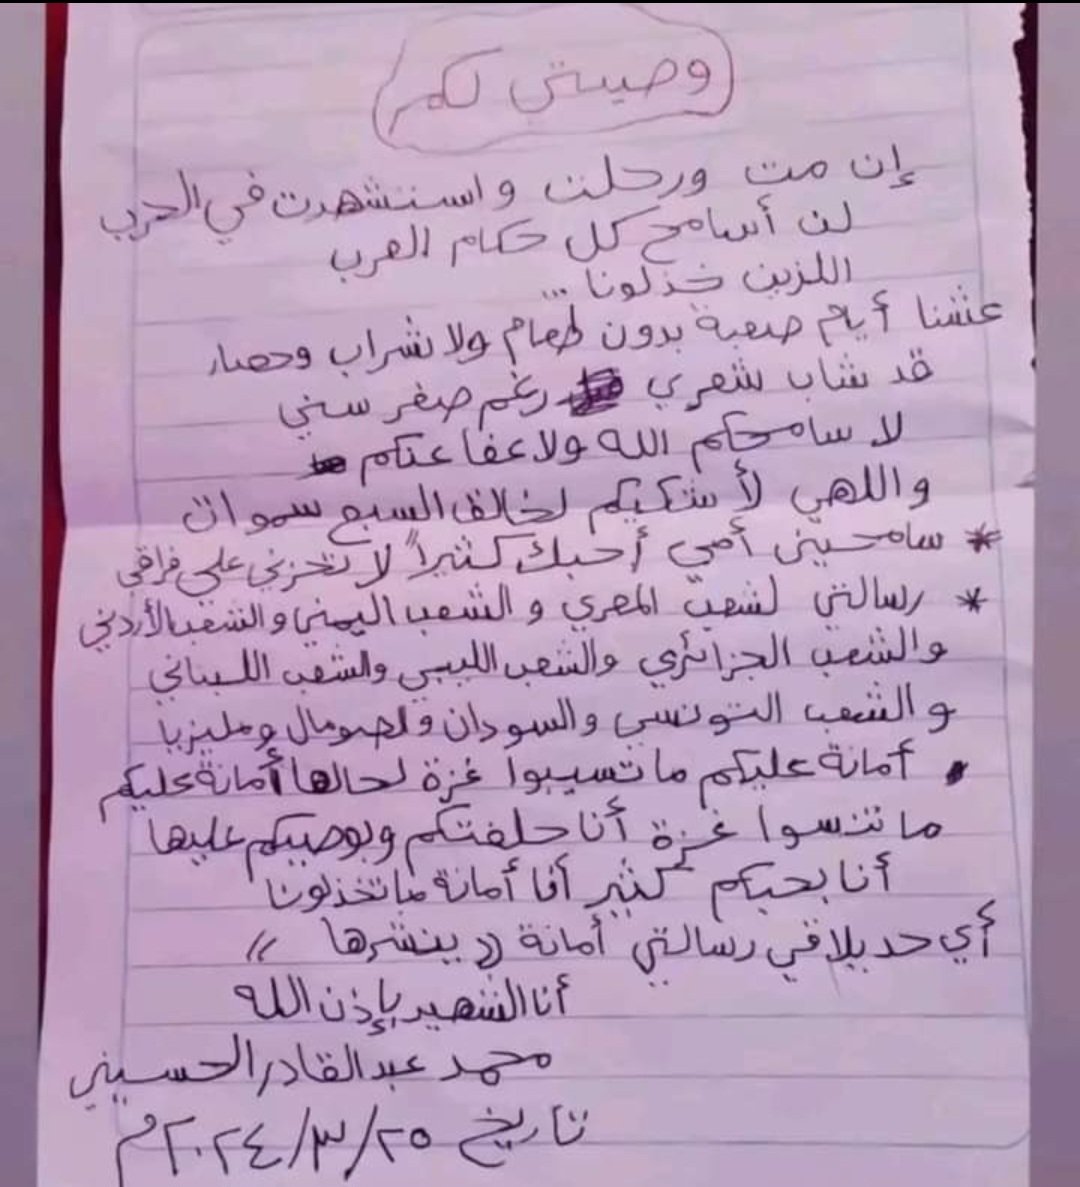 وصيتي لكم
إن مت ورحلت و استشهدت في الحرب
لن أسامح كل حكام العرب
اللزين خذلونا ...
عشنا أيام صعبة بدون طعام ولا شراب وحصار
قد شاب شعري رغم صغر سني
لا سامحكم الله ولا عفا عنكم
واللهي لأشكيكم لخالق السبع سموات
* سامحيني أمي أحبك كثيراً لا تحزني على فراقي
* رسالتي لشعب المصري و الشعب اليمني والشعب الأردني
والشعب الجزائري والشعب الليبي والشعب اللبناني
و الشعب التونسي والسودان ولصومال ومليزيا
• أمانة عليكم ما تسيبوا غزة لحالها أمانة عليكم
ما تنسوا غزة أنا حلفتكم وبوصيكم عليها
أنا بحبكم كثير أنا أمانة ما تخذلونا
أي حد يلاقي رسالتي أمانة (( ينشرها ))
أنا الشهيد بإذن الله
محمد عبد القادر الحسيني
تاريخ ٢٥/٣/٢٠٢٤م